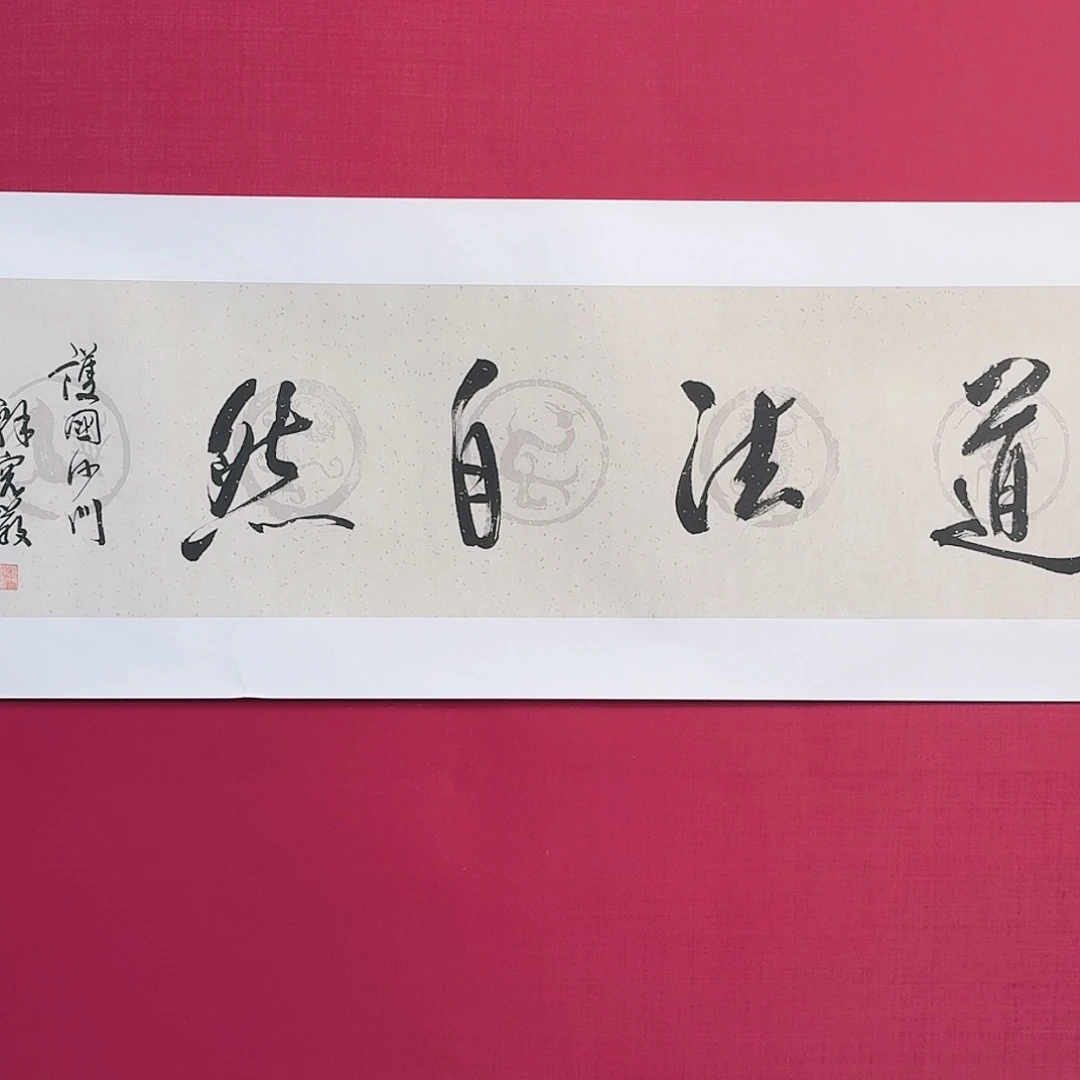 道法自然
護國沙門
釋寬嚴